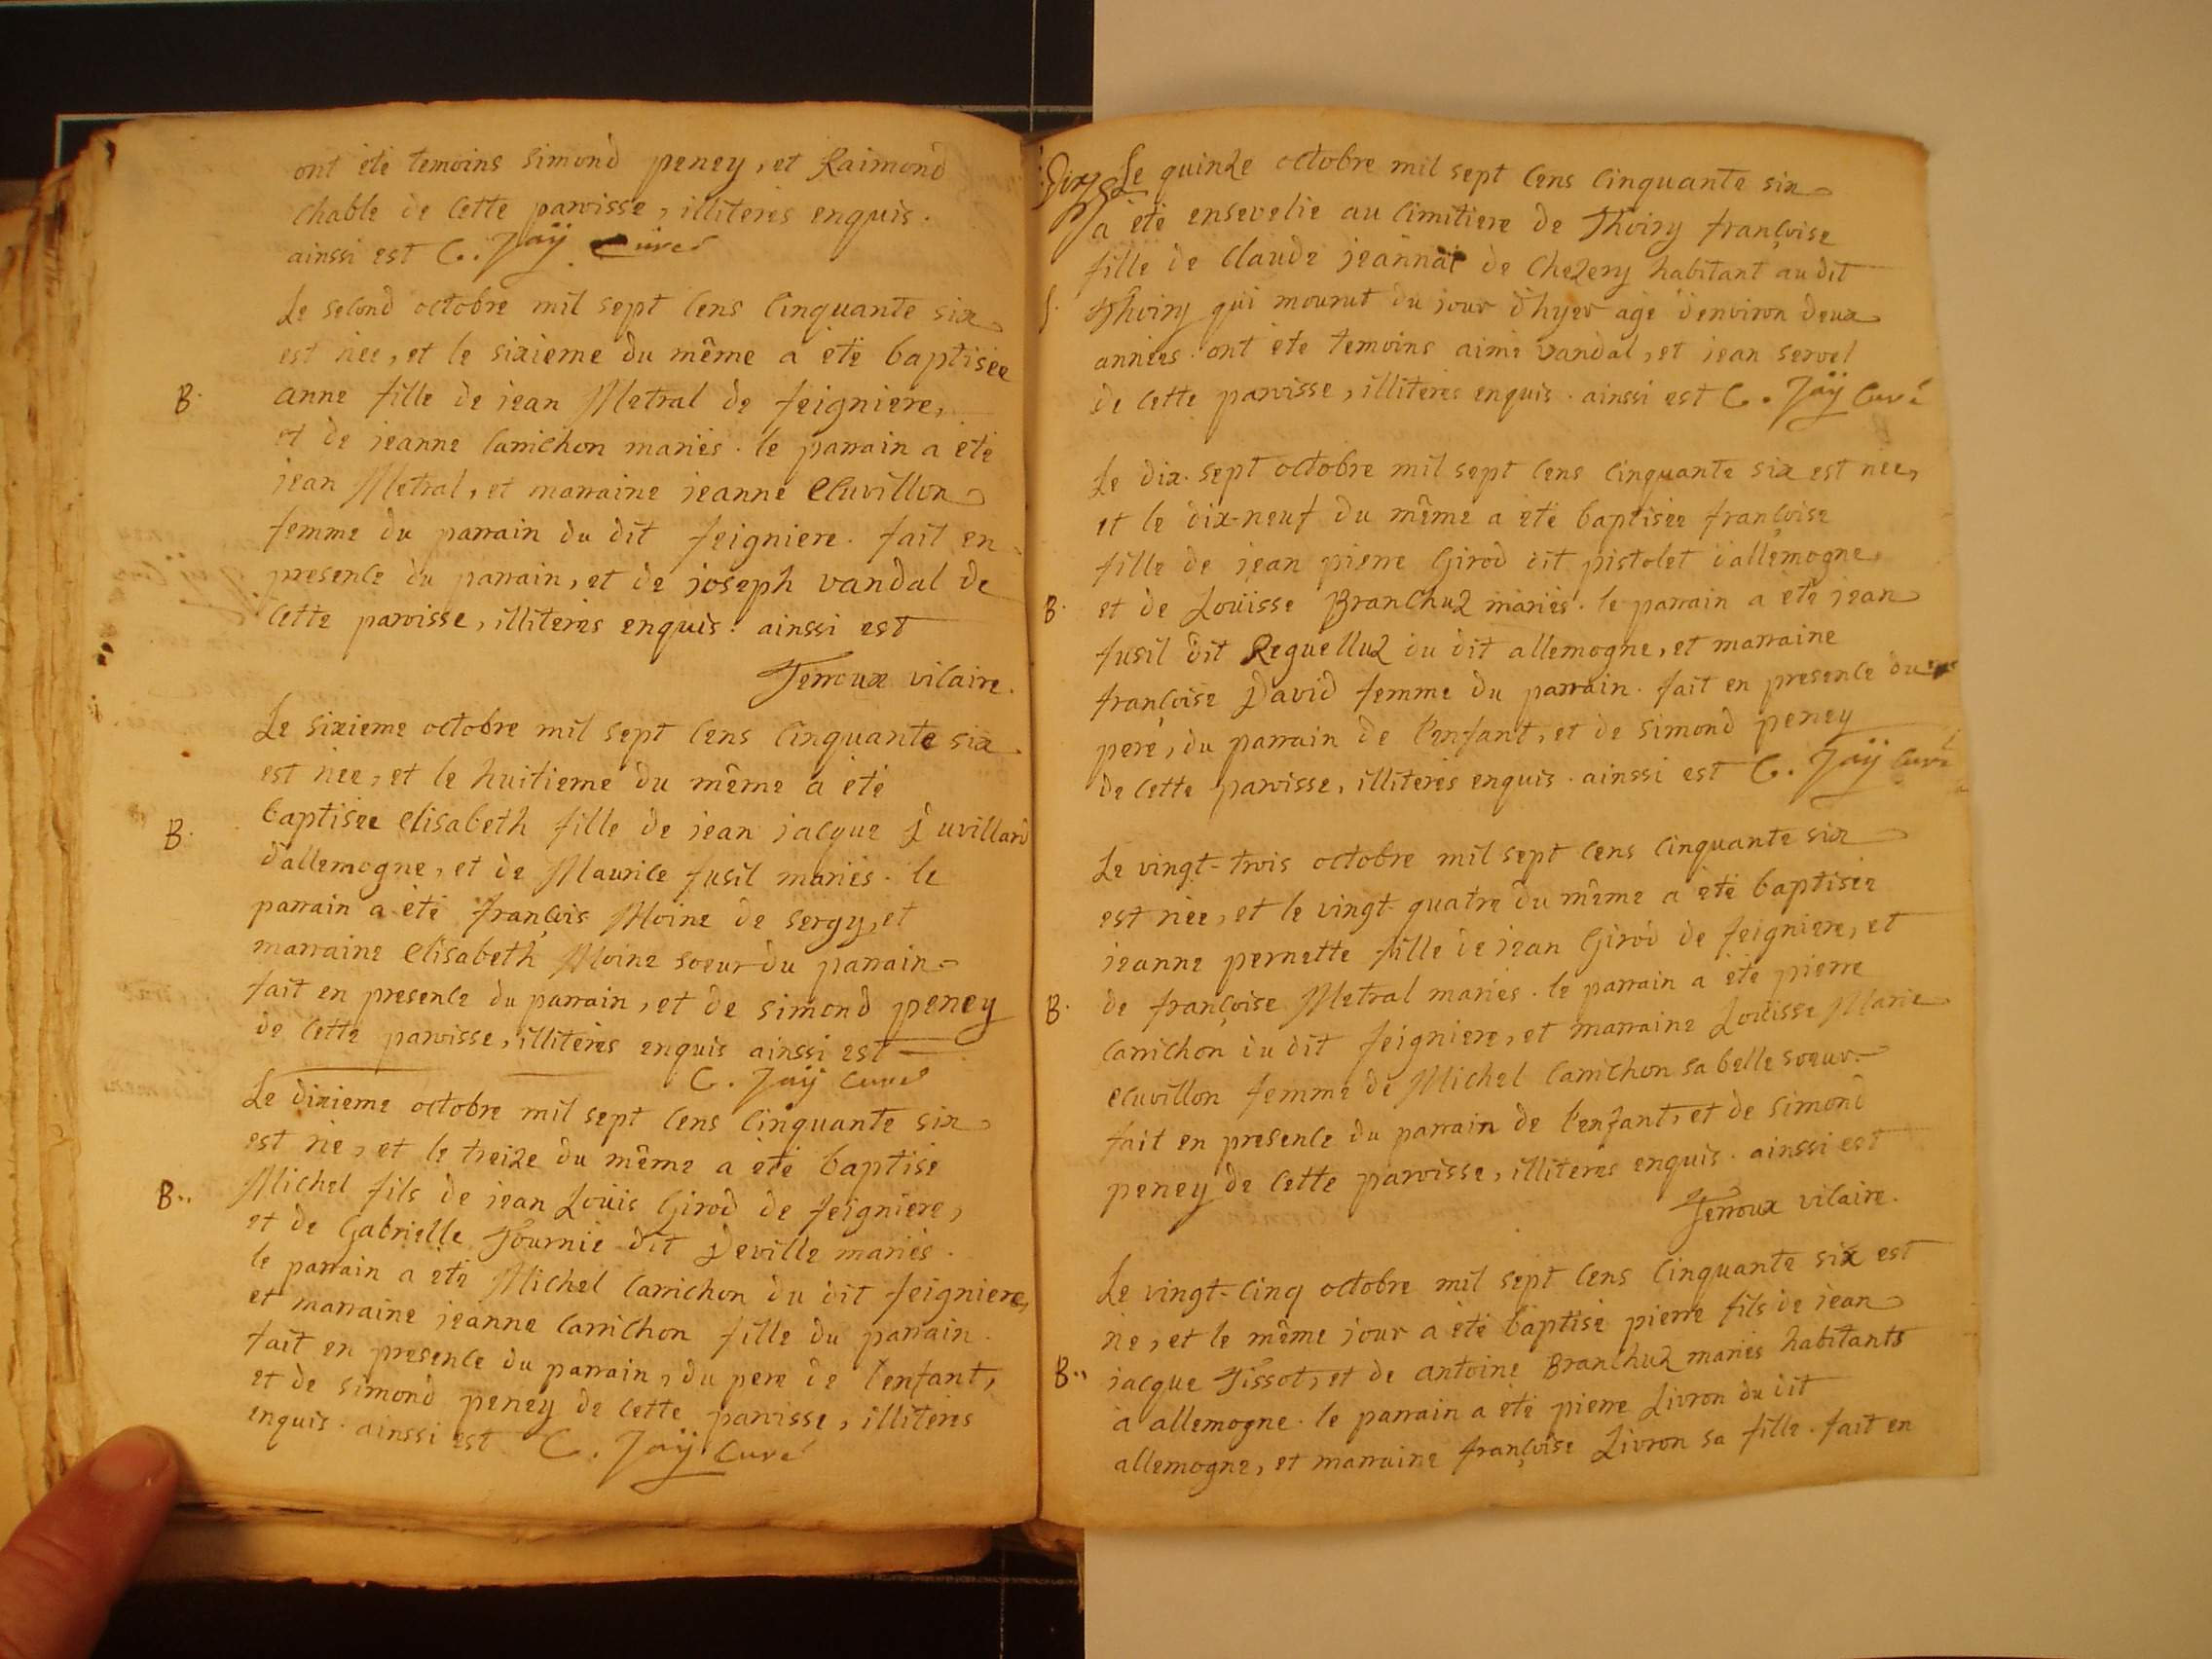 ont été temoins simond peney, et Raimond
chable de cette paroisse, illiterés enquis.
ainssi est C. Jaÿ curé
Le second octobre mil sept cens cinquante six
est née, et le sixieme du même a été baptisée
B. anne fille de jean Metral de feigniere,
et de jeanne carrichon mariés. le parrain a été
jean Metral, et marraine jeanne ecuvillon
femme du parrain du dit feigniere. fait en
presence du parrain, et de joseph vandal de
cette paroisse, illiterés enquis. ainssi est
Terroux vicaire.
Le sixieme octobre mil sept cens cinquante six
est née, et le huitieme du même a été
B. baptisée elisabeth fille de jean jacque Duvillard
d'allemogne, et de Maurice fusil mariés. le
parrain a été françois Moine de sergy, et
marraine elisabeth Moine soeur du parrain
fait en presence du parrain, et de simond peney
de cette paroisse, illiterés enquis ainssi est
C. Jaÿ curé
Le dixieme octobre mil sept cens cinquante six
est né, et le treize du même a été baptisé
B.. Michel fils de jean Loüis Girod de feigniere,
et de Gabrielle Fournié dit Deville mariés.
le parrain a été Michel carrichon du dit feigniere,
et marraine jeanne carrichon fille du parrain.
fait en presence du parrain, du pere de l'enfant,
et de simond peney de cette paroisse, illiterés
enquis. ainssi est C. Jaÿ curé
Le quinze octobre mil sept cens cinquante six
a été ensevelie au cimitiere de Thoiry françoise
fille de claude jeannat de chezery habitant au dit
S. Thoiry qui mourut du jour d'hyer agé d'environ deux
années. ont été temoins aimé vandal, et jean servel
de cette paroisse, illiterés enquis. ainssi est C. Jaÿ curé
Le dix-sept octobre mil sept cens cinquante six est née,
et le dix-neuf du même a été baptisée françoise
fille de jean pierre Girod dit pistolet d'allemogne,
B. et de Loüisse Branchuz mariés. le parrain a été jean
fusil dit Reguelluz du dit allemogne, et marraine
françoise David femme du parrain. fait en presence du
pere, du parrain de l'enfant, et de simond peney
de cette paroisse, illiterés enquis. ainssi est C. Jaÿ curé
Le vingt-trois octobre mil sept cens cinquante six
est née, et le vingt-quatre du même a été baptisée
jeanne pernette fille de jean Girod de feigniere, et
B. de françoise Metral mariés. le parrain a été pierre
carrichon du dit feigniere, et marraine Loüisse Marie
ecuvillon femme de Michel carrichon sa belle soeur
fait en presence du parrain de l'enfant, et de simond
peney de cette paroisse, illiterés enquis. ainssi est
Terroux vicaire.
Le vingt-cinq octobre mil sept cens cinquante six est
né, et le même jour a été baptisé pierre fils de jean
B.. jacque Tissot, et de antoine Branchuz mariés habitants
a allemogne. le parrain a été pierre Livron du dit
allemogne, et marraine françoise Livron sa fille. fait en